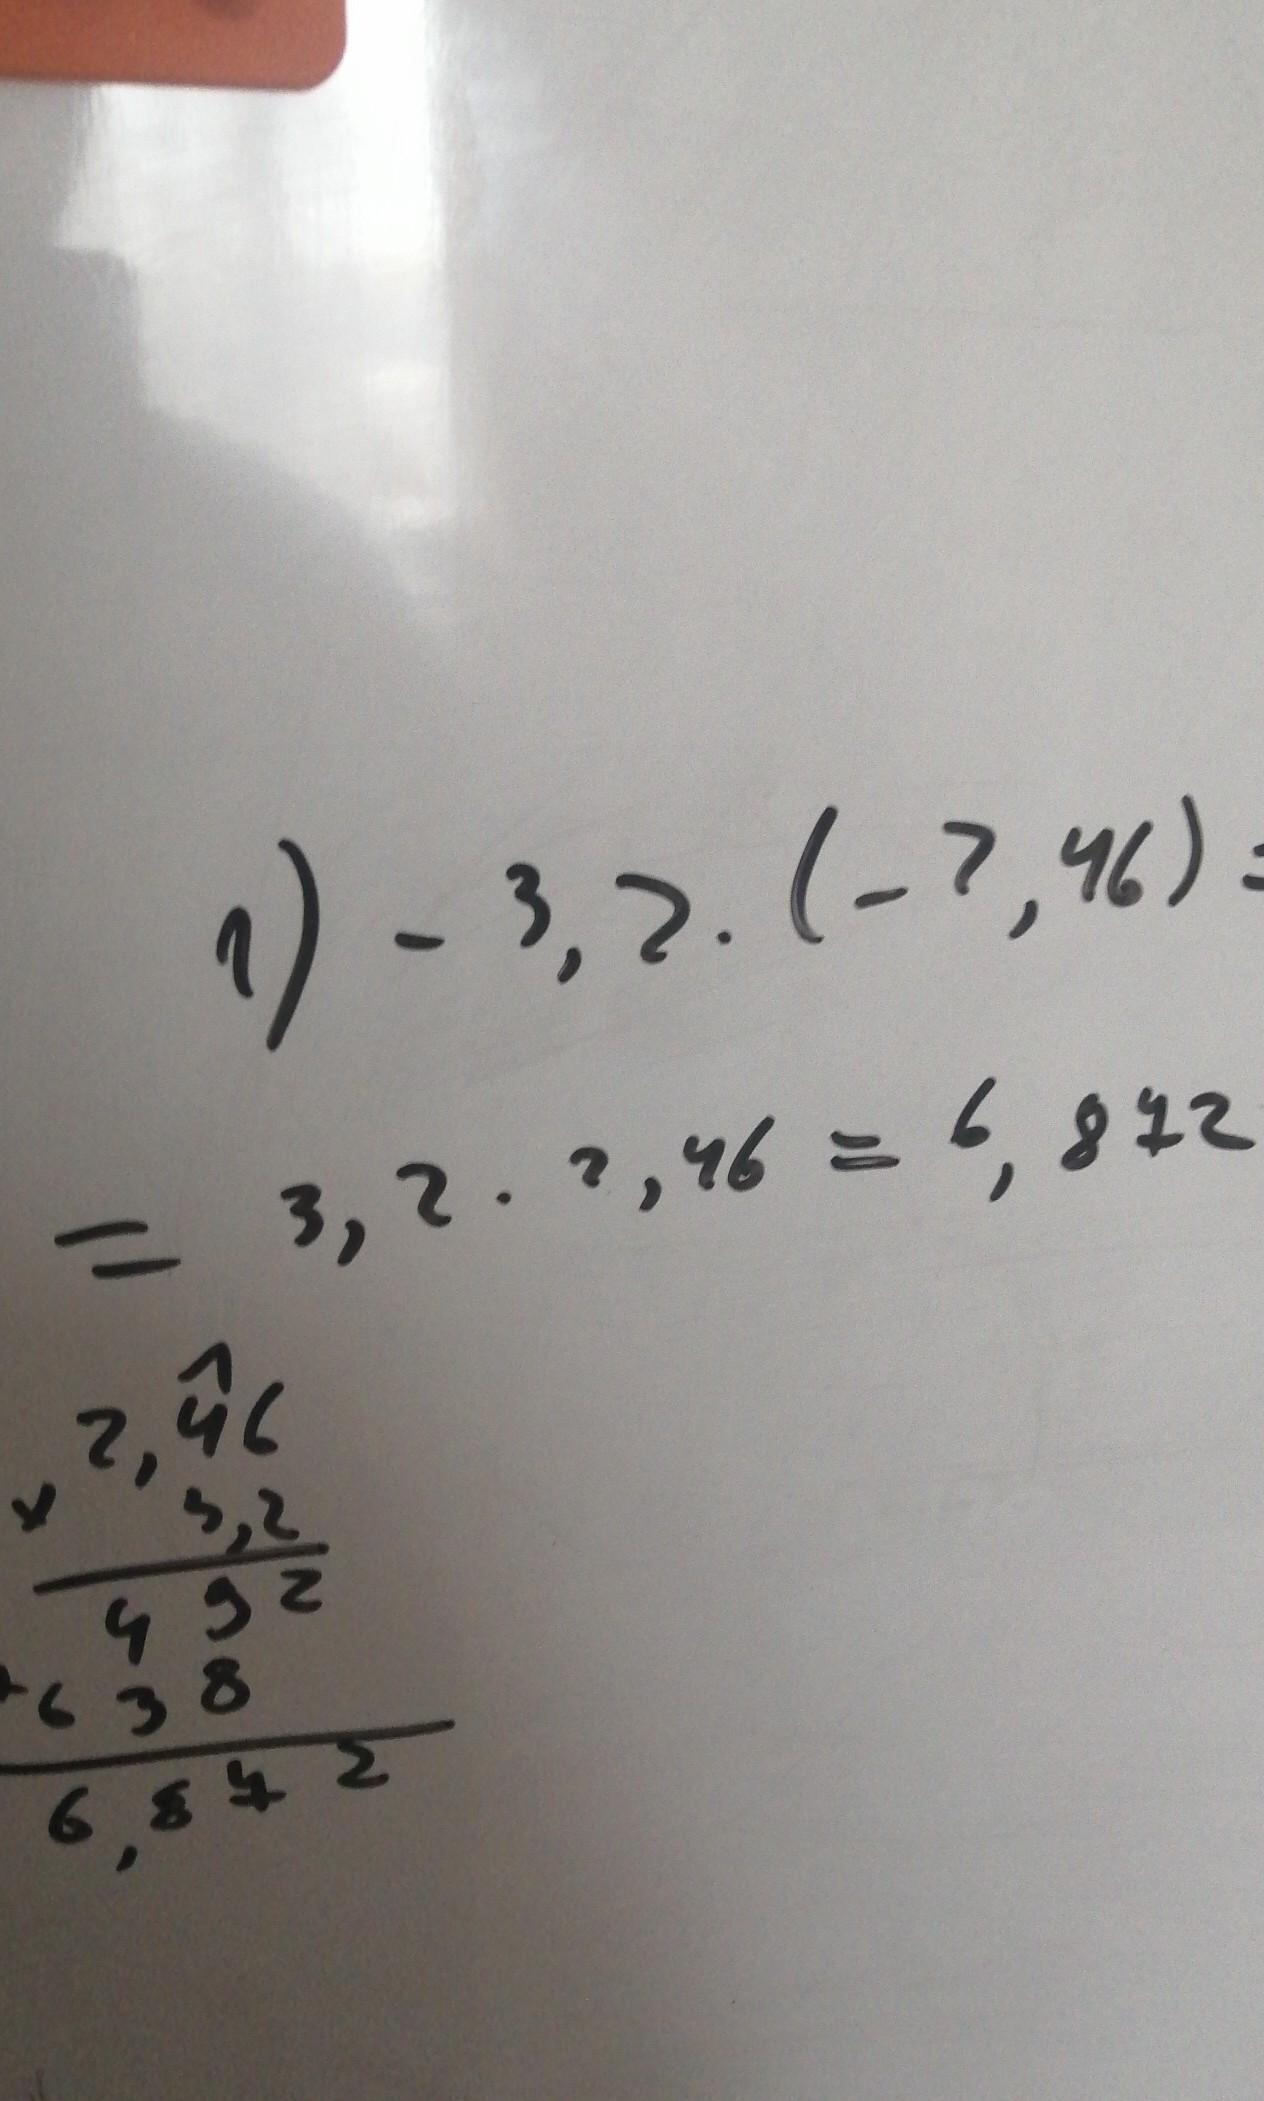 1) - 3,2 . (-2,46) =
= 3,2 . 2,46 = 6,872
1
2,46
x 3,2
492
+ 638
6,872